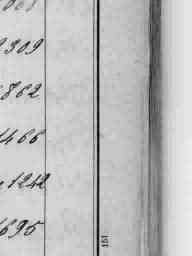 309
862
1466
1242
1695
151